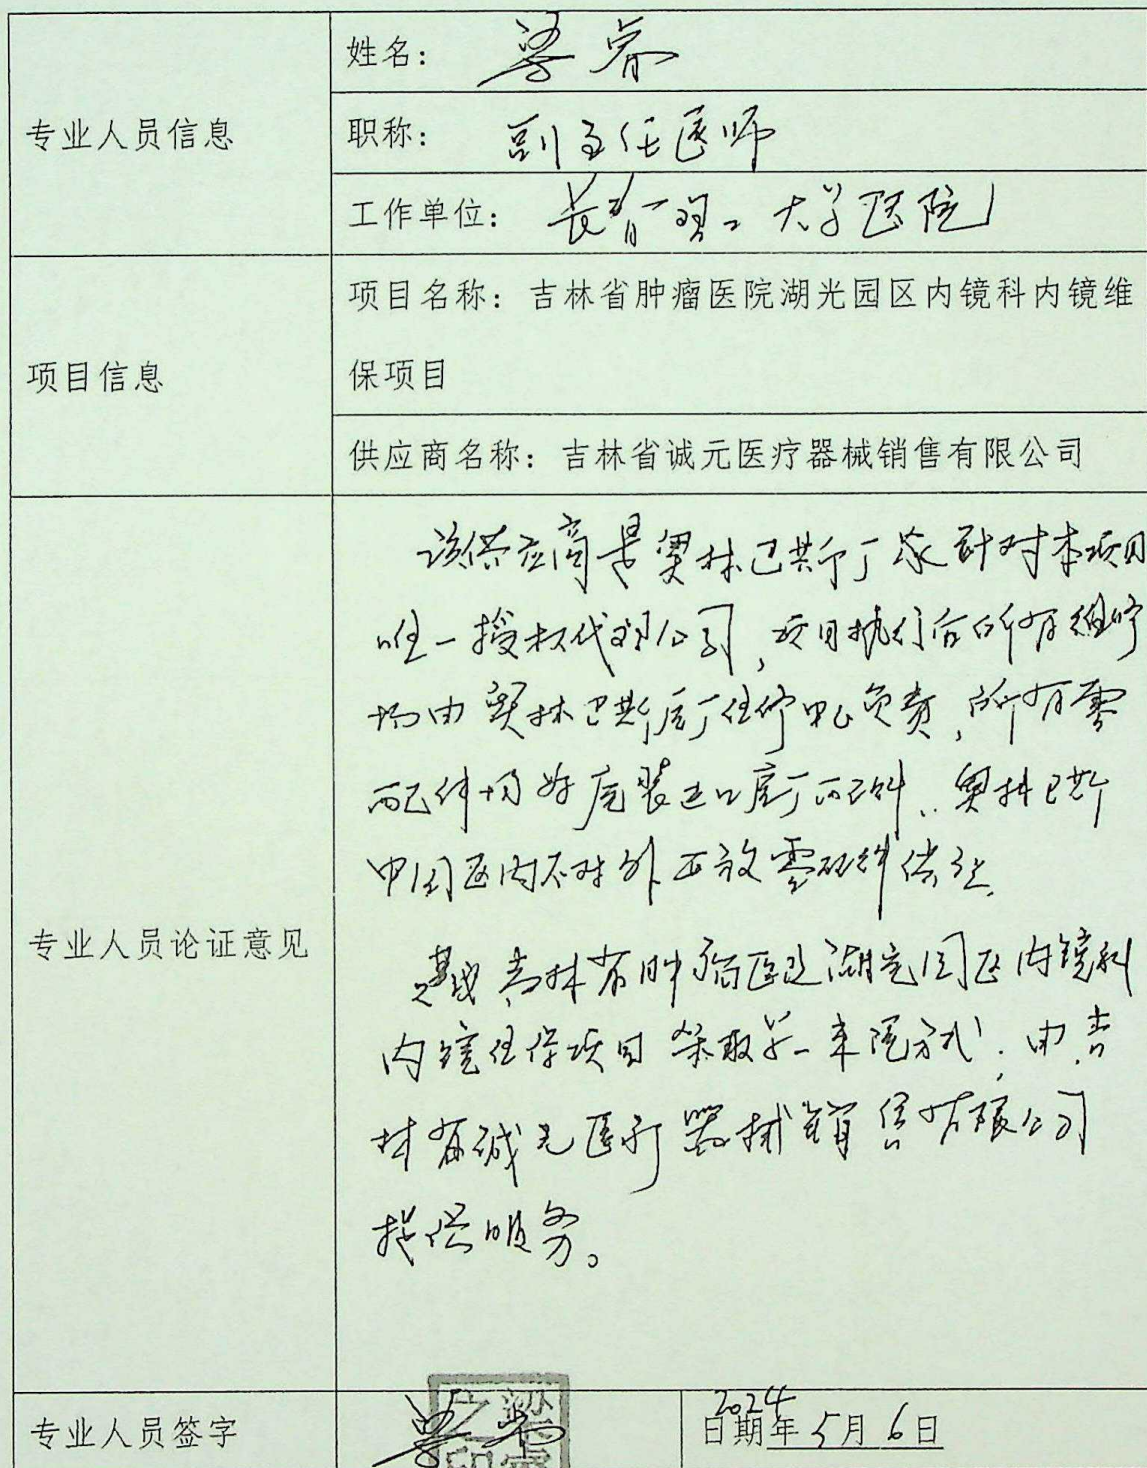 专业人员信息
姓名：梁睿
职称：副主任医师
工作单位：长春理工大学医院
项目信息
项目名称：吉林省肿瘤医院湖光园区内镜科内镜维
保项目
供应商名称：吉林省诚元医疗器械销售有限公司
专业人员论证意见
该供应商是奥林巴斯厂家针对本项目
唯一授权代理公司，项目执行后所有维修
均由奥林巴斯原厂维修中心负责，所有零
配件均为原装进口原厂配件，奥林巴斯
中国区内不对外开放零配件供应.
建议吉林省肿瘤医院湖光园区内镜科
内镜维保项目采取单一来源方式，由吉
林省诚元医疗器械销售有限公司
提供服务。
专业人员签字
梁睿
日期2024年5月6日